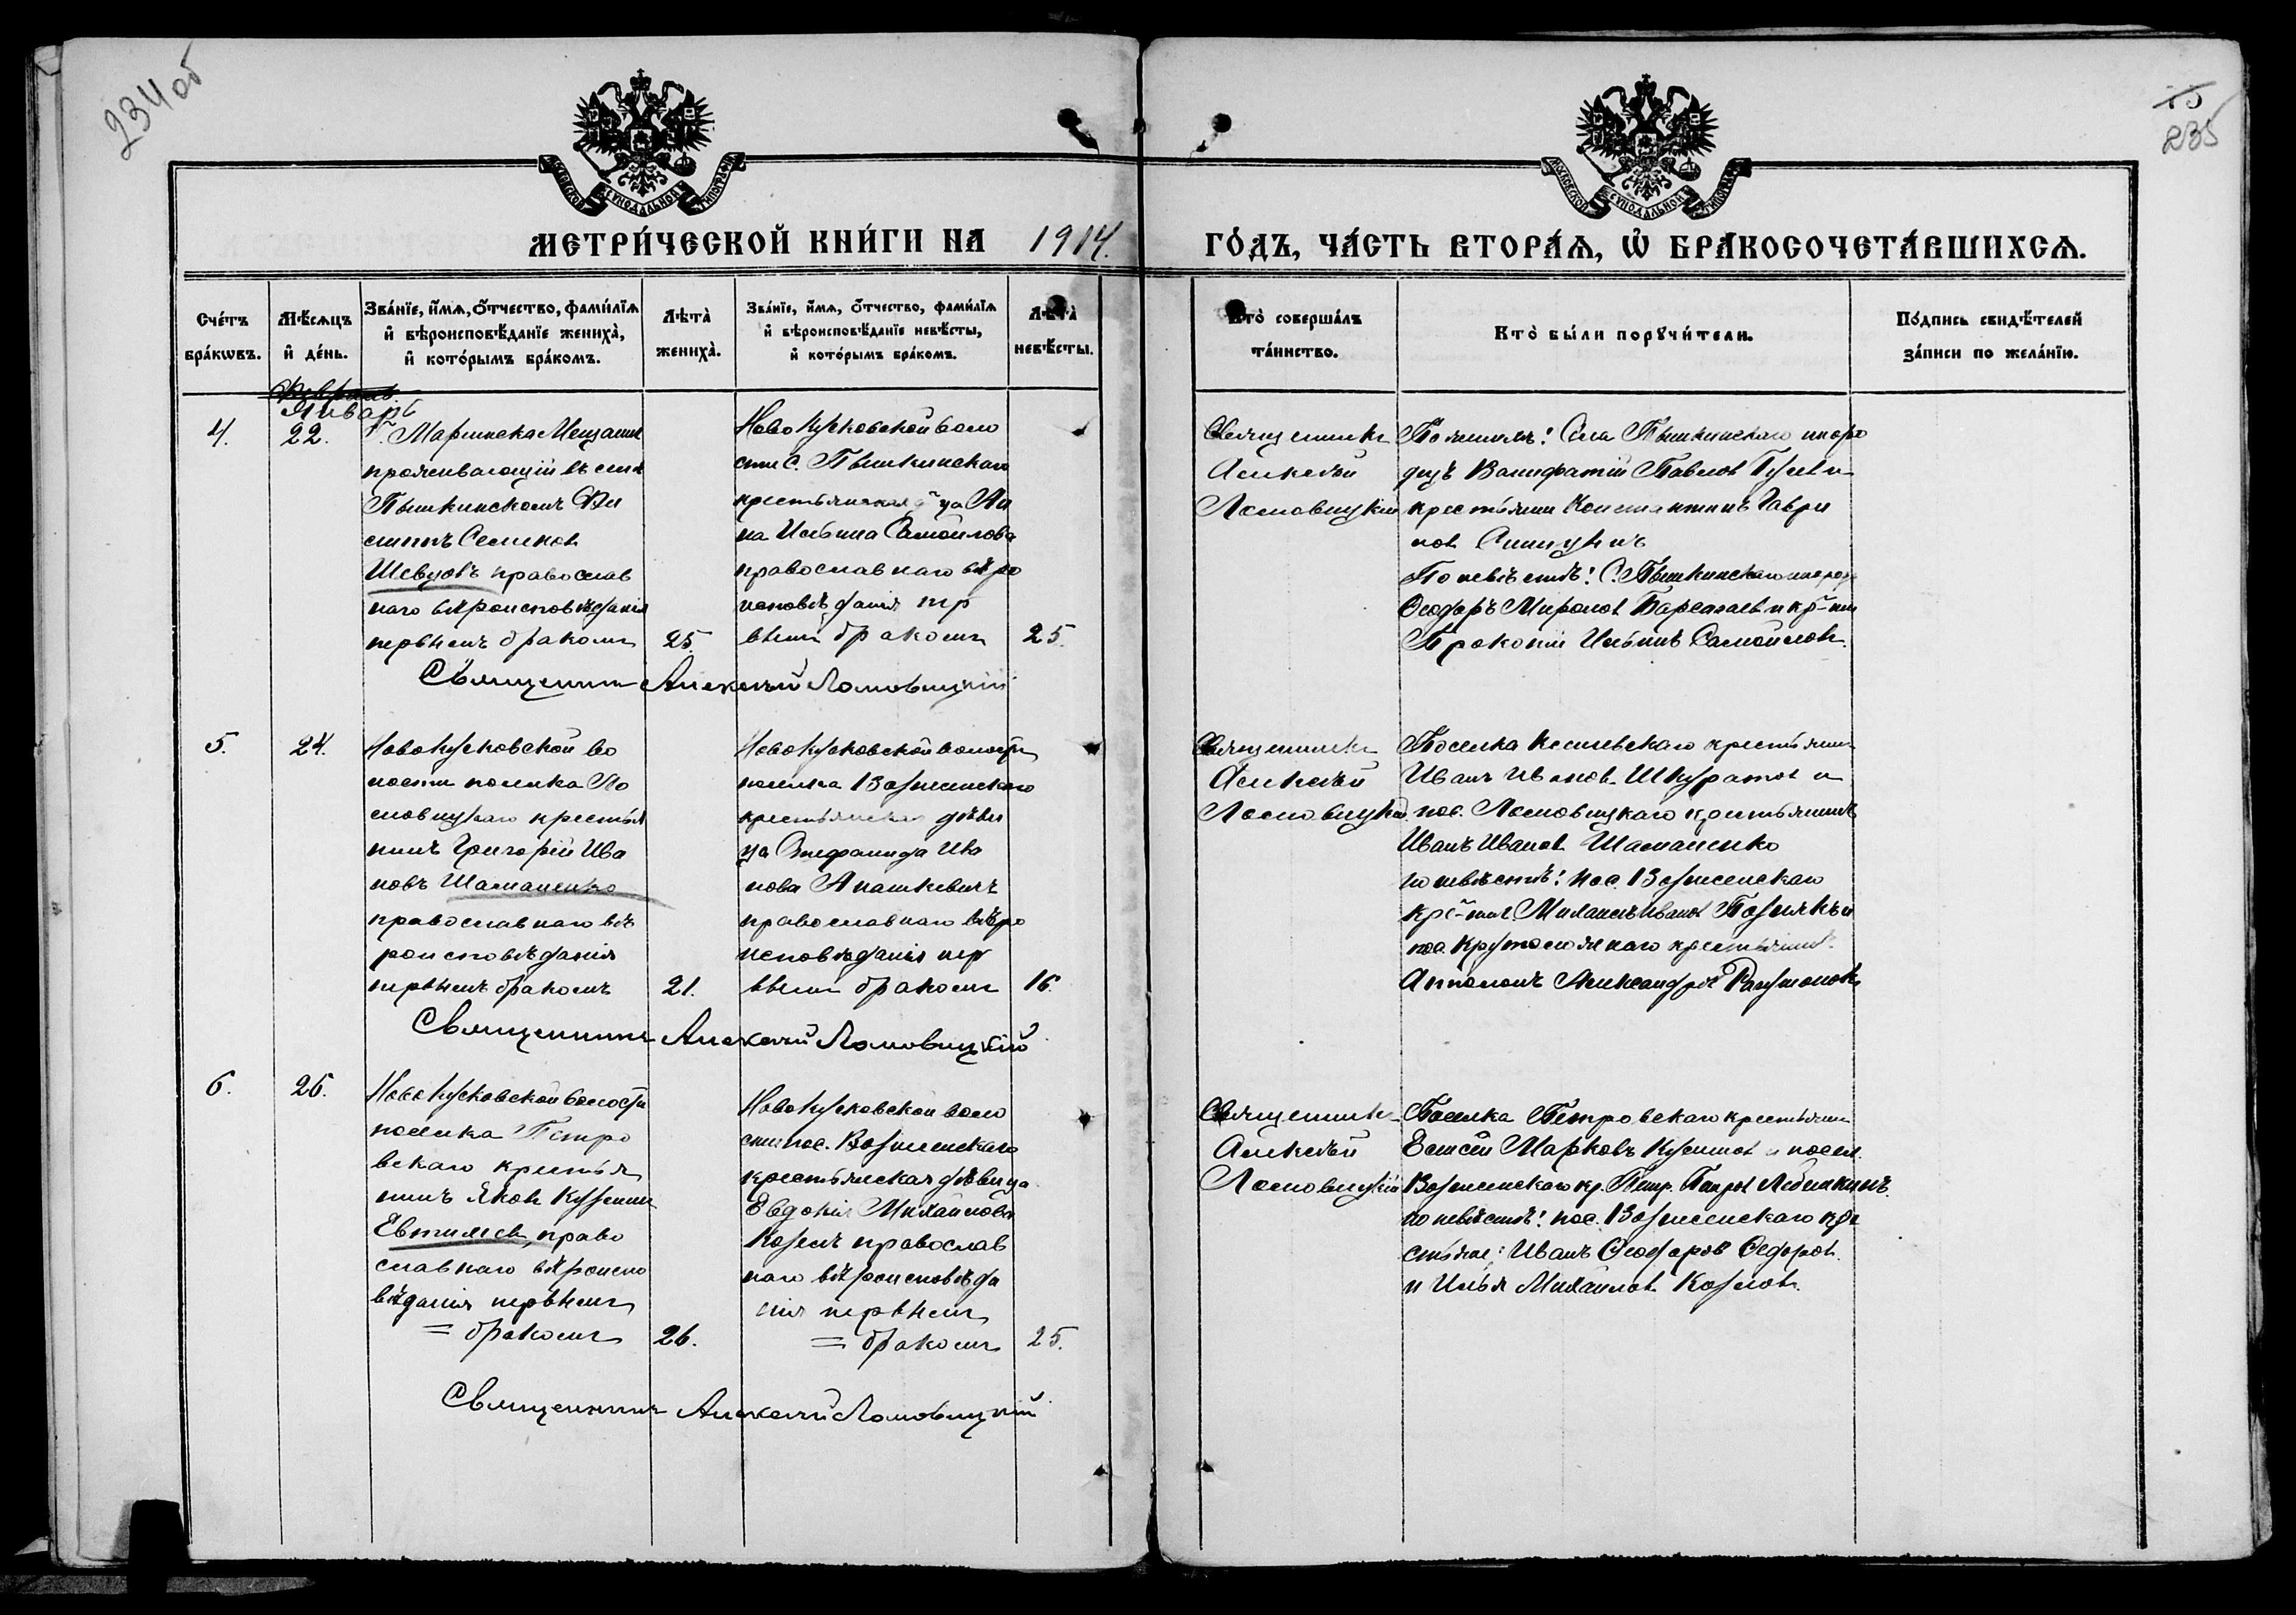 234 об
15
235
МОСКОВСКОЙ СѴНОДАЛЬНОЙ ТИПОГРАФ
МОСКОВСКОЙ СѴНОДАЛЬНОЙ ТИПОГРАФ
МЕТРИ́ЧЕСКОЙ КНИ́ГИ НА 1914.
ГО́ДЪ, ЧА́СТЬ ВТОРА́Ѧ, Ѡ҆ БРАКОСОЧЕТА́ВШИХСѦ.
Сче́тъ
бра́кѡвъ.
Мѣ́сѧцъ
и҆ де́нь.
Зва́нїе, и҆́мѧ, ѻ҆́тчество, фами́лїѧ
и҆ вѣроисповѣ́данїе жениха̀,
и҆ кото́рымъ бра́комъ.
Лѣ́та̀
жениха̀.
Зва́нїе, и҆́мѧ, ѻ҆́тчество, фами́лїѧ
и҆ вѣроисповѣ́данїе невѣ́сты,
и҆ кото́рымъ бра́комъ.
Лѣ́та̀
невѣ́сты.
Кто̀ соверша́лъ
та́инство.
Кто̀ бы́ли порꙋчи́тели.
По́дпись свидѣ́телей
за́писи по жела́нїю.
Февраль.
Январь
4.
22.
Г. Маріинска Мещанин
проживающій въ селѣ
Пышкинскомъ Фи
липпъ Семенов
Шевцовъ православ
наго вѣроисповѣданія
первымъ бракомъ
25.
Ново Кусковской воло
сти с. Пышкинскаго
крестьянская д-ца Ан
на Ильина Самойлова
православнаго вѣро
исповѣданія пер
вымъ бракомъ
25.
Священникъ
Алексѣй
Ломовицкій
По женихѣ: Села Пышкинскаго иноро
децъ Вонифатій Павлов и
крестьянин Константинъ Гаври
лов Синицынъ
По невѣстѣ: С. Пышкинскаго инород
Ѳеодоръ Миронов и кр-нин
Прокопій Ильинъ Самойловъ.
Священникъ Алексѣй Ломовицкій
5.
24.
Ново Кусковской во
лости поселка Ло
мовицкаго крестья
нинъ Григорій Ива
новъ Шаманенко
православнаго вѣ
роисповѣданія
первымъ бракомъ
21.
Ново Кусковской волости
поселка Вознесенскаго
крестьянская дѣви
ца Епифанида Ива
нова Апашкевичъ
православнаго вѣро
исповѣданія пер
вымъ бракомъ
16.
Священникъ
Алексѣй
Ломовицкій
Поселка крестьянин
Иванъ Иванов Шкуратов и
пос. Ломовицкаго крестьянинъ
Иванъ Иванов Шаманенко
По невѣстѣ: пос. Вознесенскаго
кре-нин Михаилъ Иванов Познякъ и
пос. Крутоложнаго крестьянинъ
Александров
Священникъ Алексѣй Ломовицкій
6.
26.
Ново Кусковской волости
поселка Петро
вскаго крестья
нинъ Яков Кузьмин
Евтимеев, право
славнаго вѣроиспо
вѣданія первымъ
= бракомъ
26.
Ново Кусковской воло
сти пос. Вознесенскаго
крестьянская дѣвица
Евдокія Михайлова
Козелъ православ
наго вѣроисповѣда
нія первымъ
= бракомъ
25.
Священникъ
Алексѣй
Ломовицкій
Поселка Петровскаго крестьянин
Марковъ и посел.
Вознесенскаго кр. Петр. Петров
По невѣстѣ: пос. Вознесенскаго кре
стьяне: Иванъ Ѳеодоров Ѳедоров
и Илья Михайлов Козлов.
Священникъ Алексѣй Ломовицкій